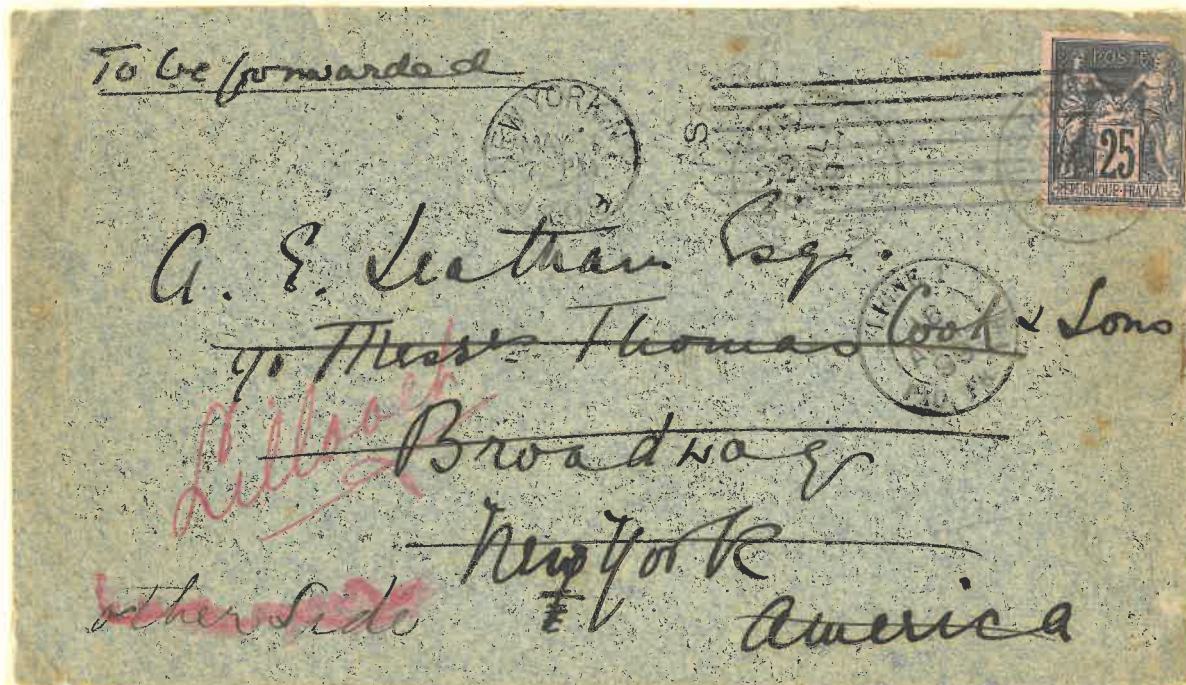 To be forwarded
NEW YORK, N.Y.
POSTE
25
REPUBLIQUE FRANCAISE
A. E. Leatham Esq.
c/o Messrs Thomas Cook & Sons
Broadway
New York
America
other side